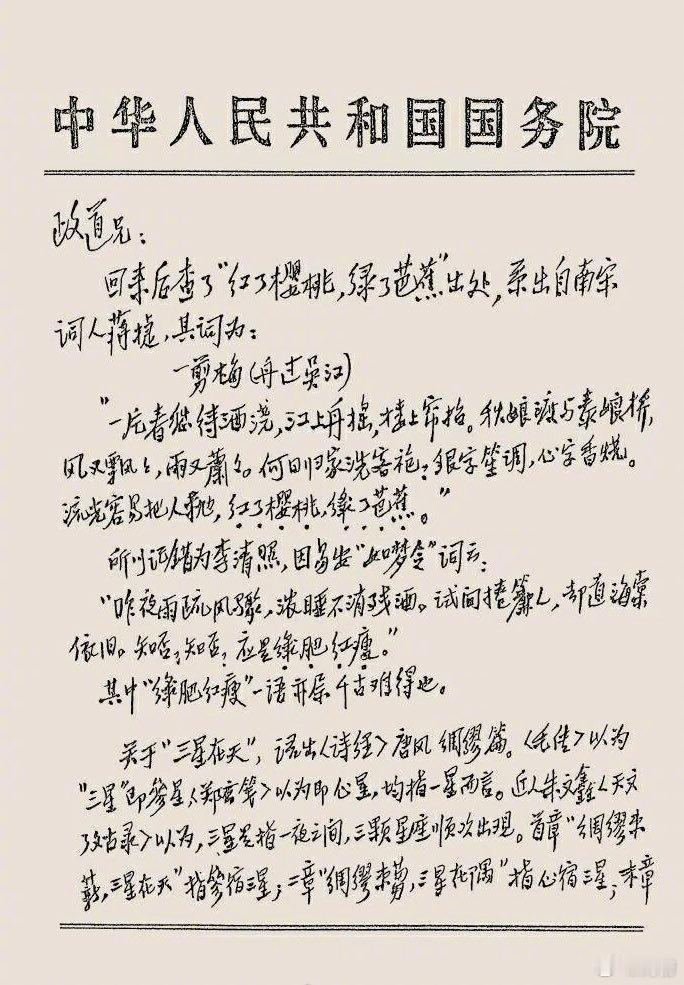 中华人民共和国国务院
政道兄：
回来后查了“红了樱桃，绿了芭蕉”出处，系出自南宋
词人蒋捷，其词为：
一剪梅（舟过吴江）
“一片春愁待酒浇，江上舟摇，楼上帘招。秋娘渡与泰娘桥，
风又飘飘，雨又萧萧。何日归家洗客袍？银字笙调，心字香烧。
流光容易把人抛，红了樱桃，绿了芭蕉。”
所以误错为李清照，因易安“如梦令”词云：
“昨夜雨疏风骤，浓睡不消残酒。试问捲簾人，却道海棠
依旧。知否？知否？应是绿肥红瘦。”
其中“绿肥红瘦”一语亦属千古难得也。
关于“三星在天”，语出《诗经》唐风 绸缪篇。《毛传》以为
“三星”即参星，《郑玄笺》以为即心星，均指一星而言。近人朱文鑫《天文
考古录》以为，三星是指一夜之间，三颗星座顺次出现。首章“绸缪束
薪，三星在天”指参宿三星；二章“绸缪束刍，三星在隅”指心宿三星；末章